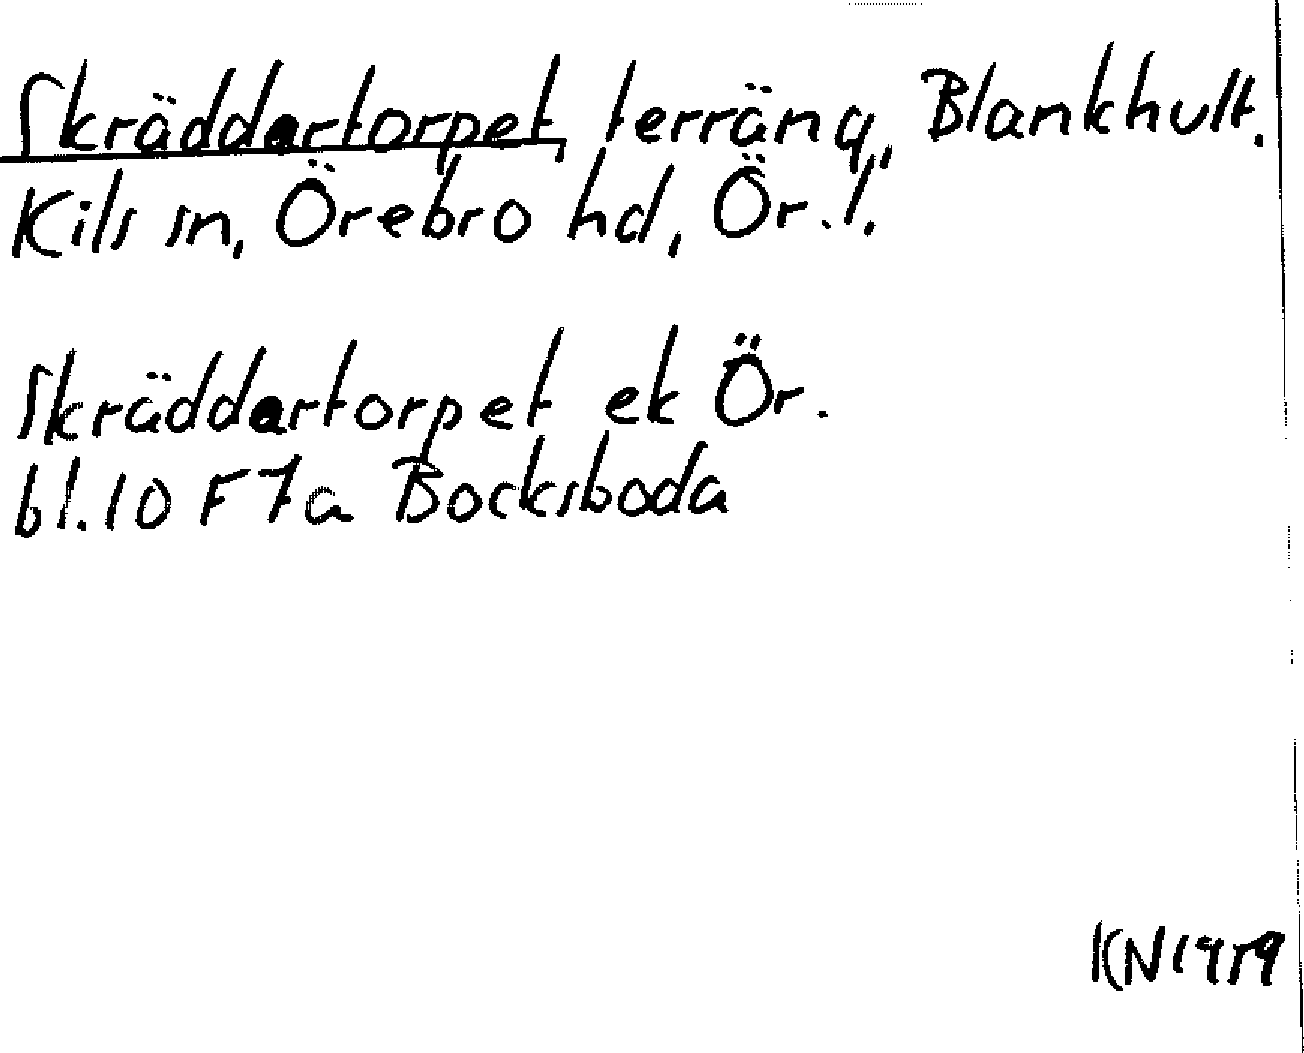 Skräddartorpet, terräng, Blankhult.
Kils sn, Örebro hd, Ör. l.
Skräddartorpet ek Ör.
bl. 10 F 7a Bocksboda
KN 1959